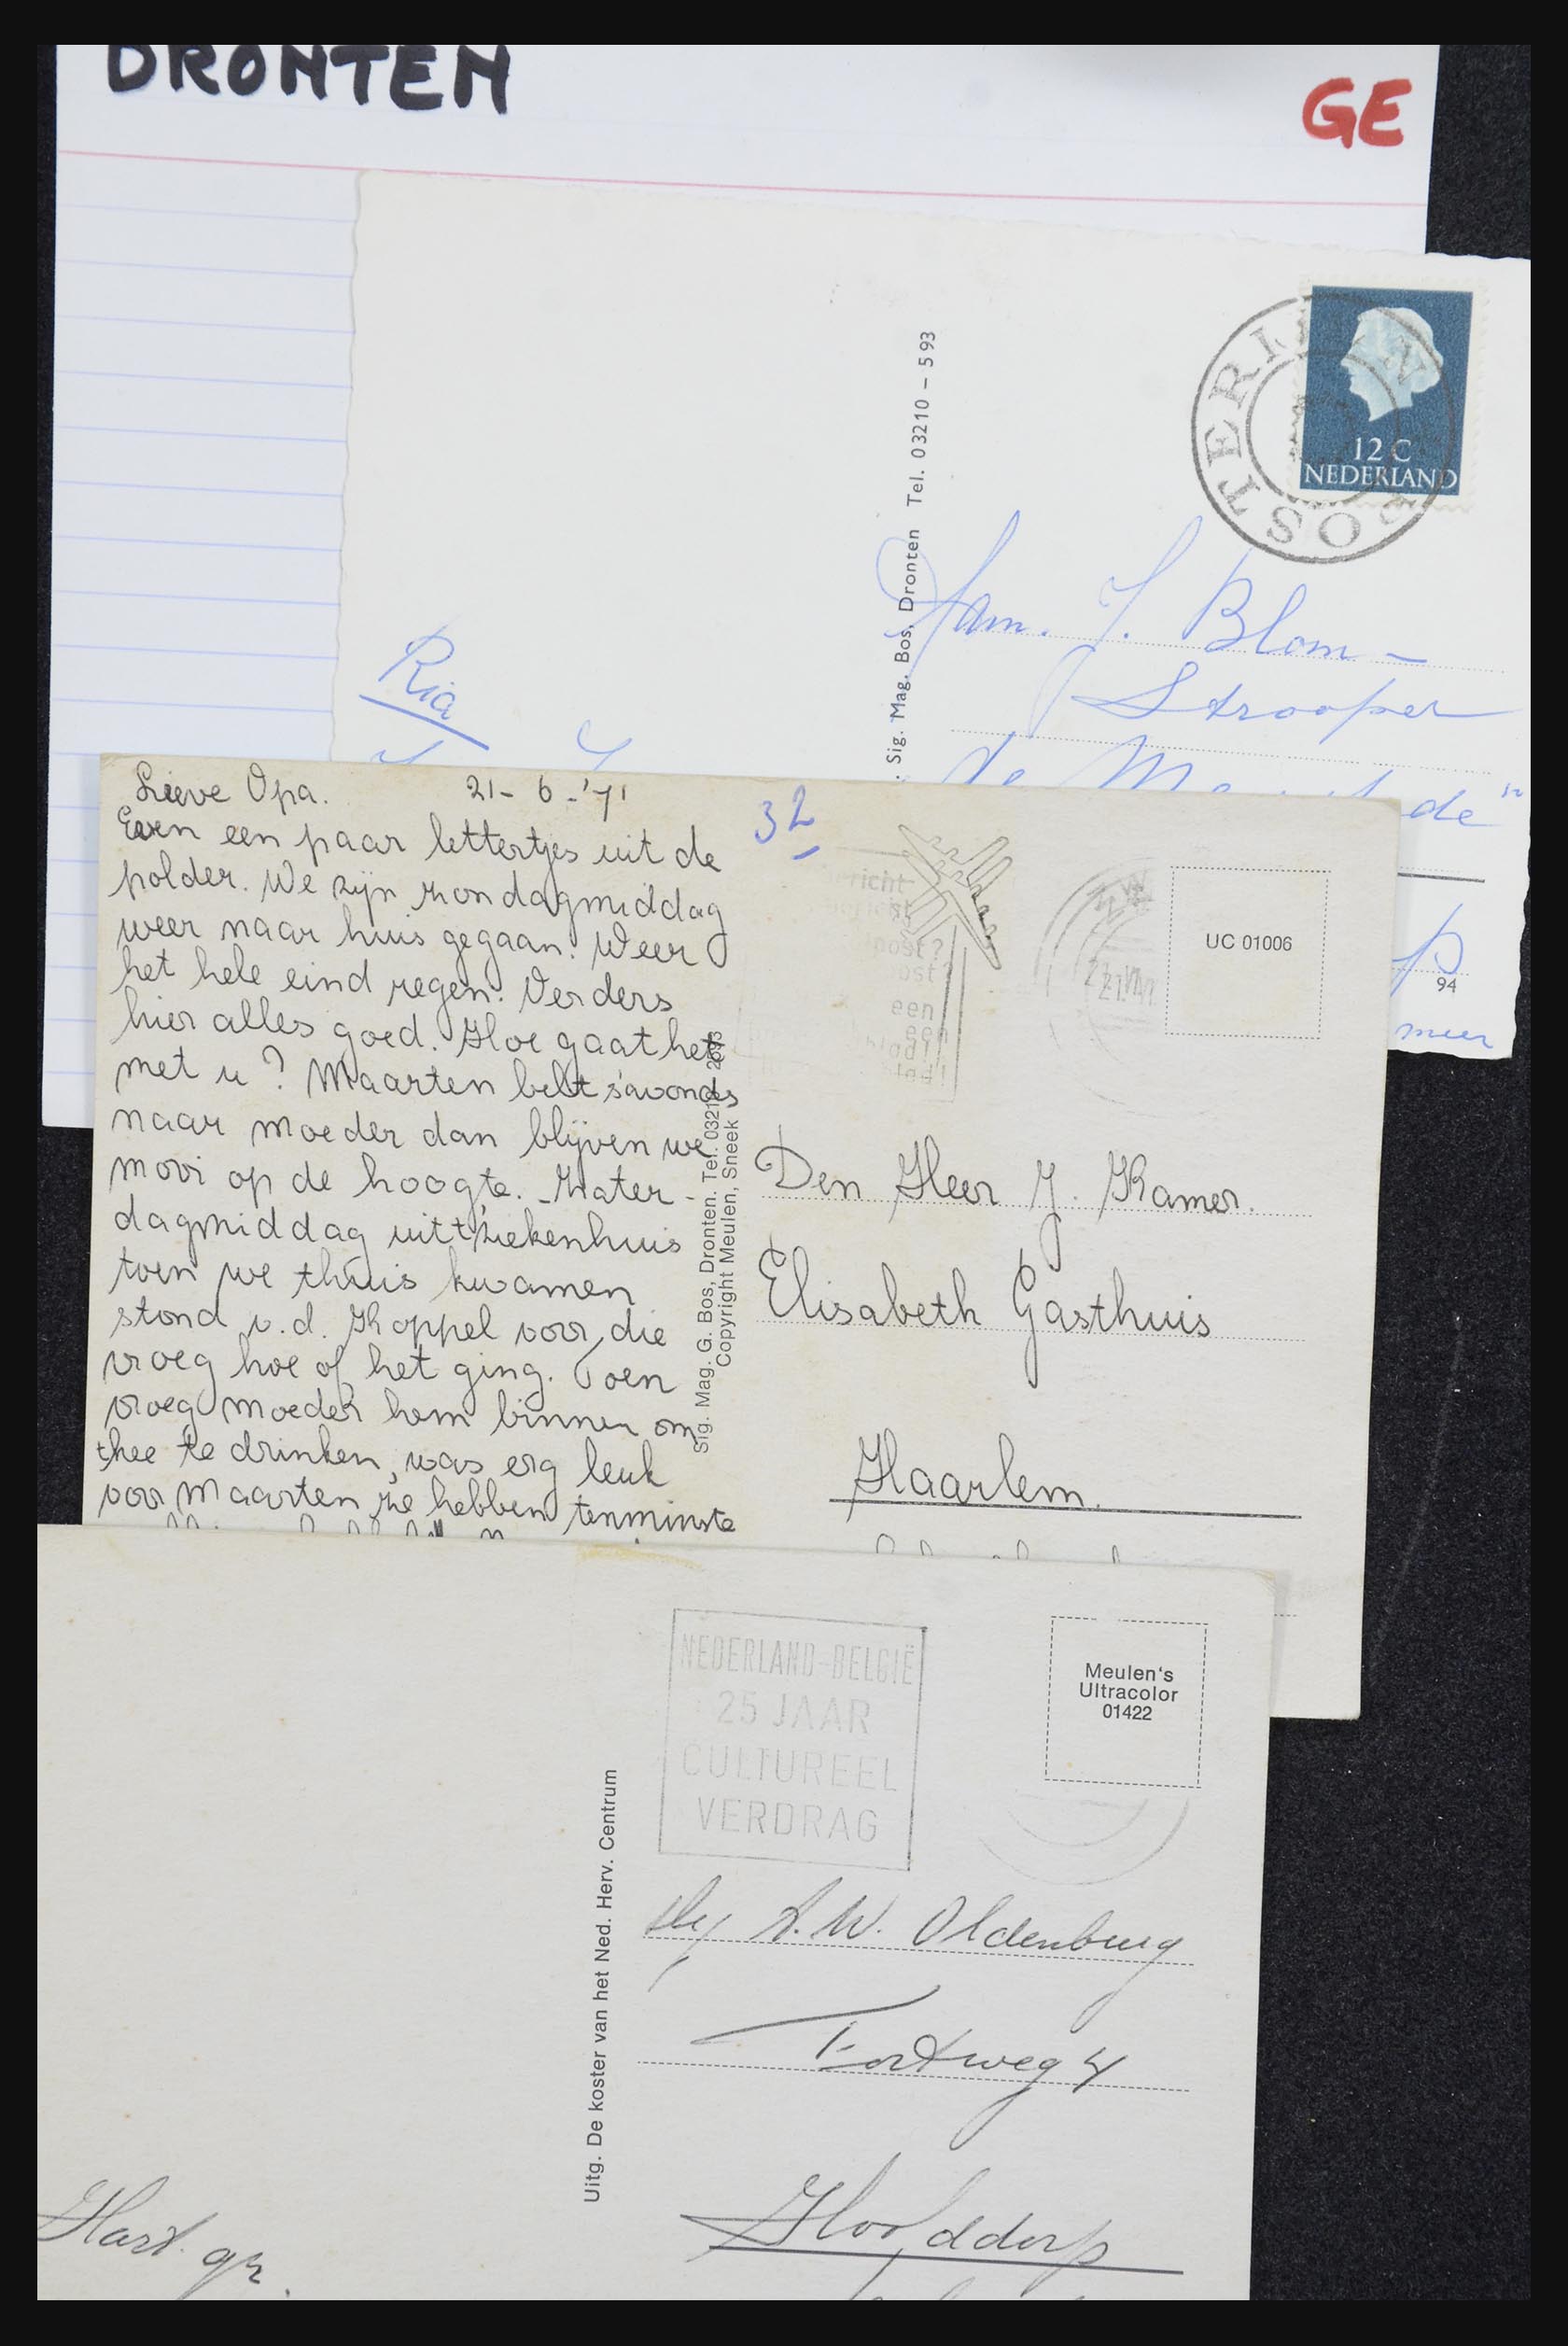 DRONTEN
GE
OOSTERINGEN
12 C
NEDERLAND
Sig. Mag. Bos, Dronten Tel. 03210 – 593
Fam. J. Blom –
Strooper
de
de"
Ria
94
meer
Lieve Opa. 21-6-'71
Even een paar lettertjes uit de
polder. We zijn zondagmiddag
weer naar huis gegaan. Weer
het hele eind regen. Verders
hier alles goed. Hoe gaat het
met u? Maarten belt s'avonds
naar moeder dan blijven we
mooi op de hoogte. Zater-
dagmiddag uit t ziekenhuis
toen we thuis kwamen
stond v.d. Koppel voor, die
vroeg hoe of het ging. Toen
vroeg moeder hem binnen om
thee te drinken, was erg leuk
voor Maarten ze hebben tenminste
32
UC 01006
Sig. Mag. G. Bos, Dronten. Tel. 03210-2693
Copyright Meulen, Sneek
Den Heer J. Kamer.
Elisabeth Gasthuis
Haarlem.
NEDERLAND-BELGIË
25 JAAR
CULTUREEL
VERDRAG
Meulen's
Ultracolor
01422
Uitg. De koster van het Ned. Herv. Centrum
A.W. Oldenburg
Fortweg 4
Hoofddorp
Hart. gr.